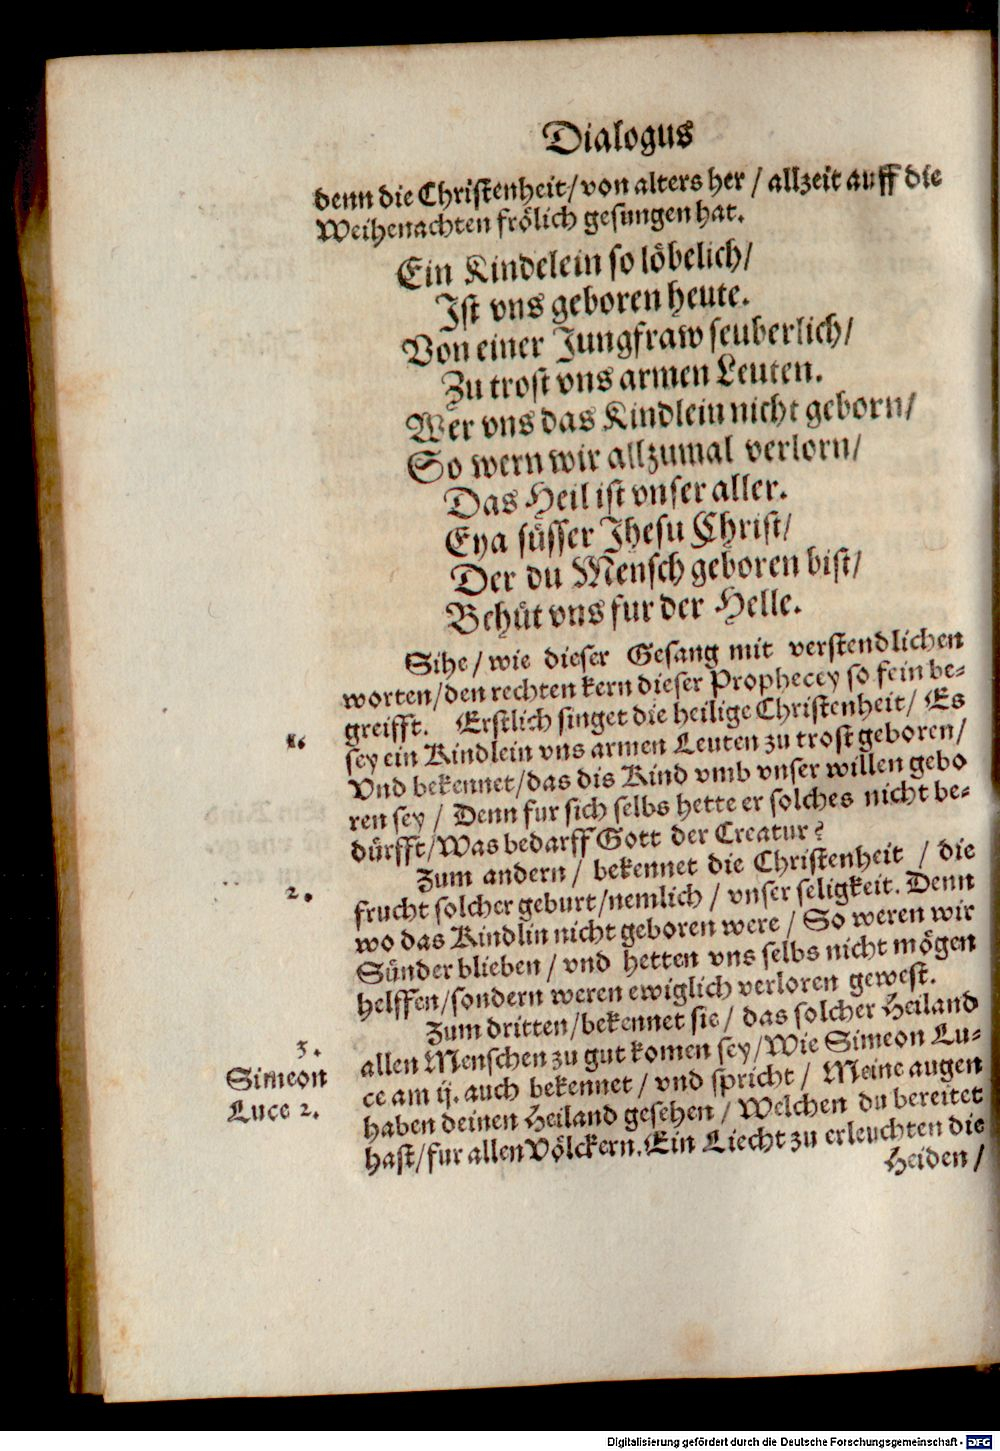 Dialogus
denn die Christenheit/ von alters her / allzeit auff die
Weihenachten frölich gesungen hat.
Ein Kindelein so löbelich/
Ist vns geboren heute.
Von einer Jungfraw seuberlich/
Zu trost vns armen Leuten.
Wer vns das Kindlein nicht geborn/
So wern wir allzumal verlorn/
Das Heil ist vnser aller.
Eya süsser Jhesu Christ/
Der du Mensch geboren bist/
Behüt vns fur der Helle.
Sihe/ wie dieser Gesang mit verstendlichen
worten/ den rechten kern dieser Prophecey so fein be-
greifft. Erstlich singet die heilige Christenheit/ Es
1.
sey ein Kindlein vns armen Leuten zu trost geboren/
Vnd bekennet/ das dis Kind vmb vnser willen gebo
ren sey / Denn fur sich selbs hette er solches nicht be-
dürfft/ Was bedarff Gott der Creatur?
Zum andern/ bekennet die Christenheit / die
2.
frucht solcher geburt/ nemlich / vnser seligkeit. Denn
wo das Kindlin nicht geboren were / So weren wir
Sünder blieben / vnd hetten vns selbs nicht mögen
helffen/ sondern weren ewiglich verloren gewest.
Zum dritten/ bekennet sie / das solcher Heiland
3.
allen Menschen zu gut komen sey/ Wie Simeon Lu-
Simeon
ce am ij. auch bekennet / vnd spricht / Meine augen
Luce 2.
haben deinen Heiland gesehen / Welchen du bereitet
hast/ fur allen Völckern. Ein Liecht zu erleuchten die
Heiden /
Digitalisierung gefördert durch die Deutsche Forschungsgemeinschaft - DFG